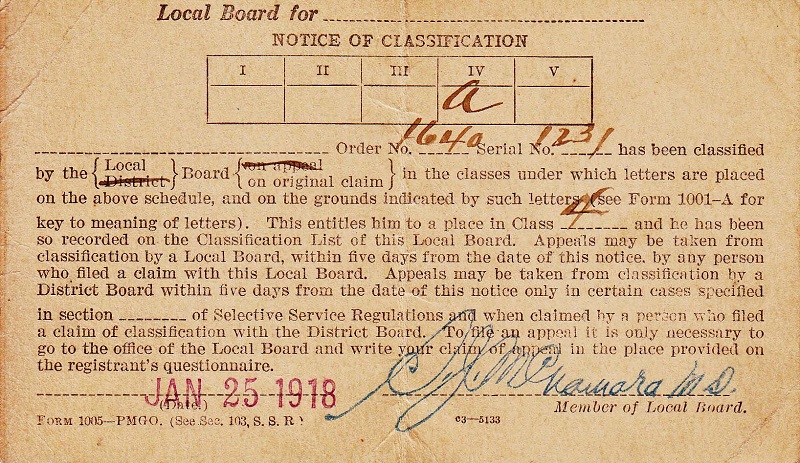 Local Board for
NOTICE OF CLASSIFICATION
I II III IV V
a
Order No. 1640 Serial No. 1231 has been classified
by the {Local District} Board {on appeal on original claim} in the classes under which letters are placed
on the above schedule, and on the grounds indicated by such letters (see Form 1001–A for
key to meaning of letters). This entitles him to a place in Class 4 and he has been
so recorded on the Classification List of this Local Board. Appeals may be taken from
classification by a Local Board, within five days from the date of this notice, by any person
who filed a claim with this Local Board. Appeals may be taken from classification by a
District Board within five days from the date of this notice only in certain cases specified
in section of Selective Service Regulations and when claimed by a person who filed
a claim of classification with the District Board. To file an appeal it is only necessary to
go to the office of the Local Board and write your claim of appeal in the place provided on
the registrant's questionnaire.
JAN 25 1918 McNamara M D
(Date.) Member of Local Board.
Form 1005—PMGO. (See Sec. 103, S. S. R.) c3—5133